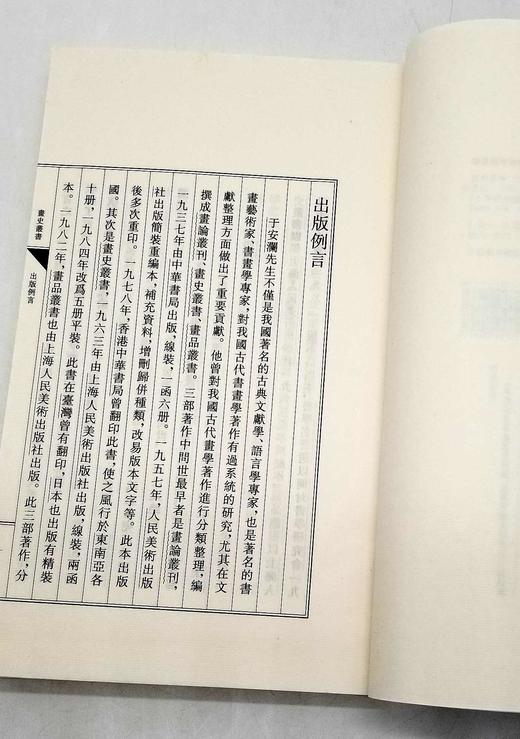 出版例言
于安瀾先生不僅是我國著名的古典文獻學、語言學專家，也是著名的書
畫藝術家、書畫學專家，對我國古代書畫學著作有過系統的研究，尤其在文
獻整理方面做出了重要貢獻。他曾對我國古代畫學著作進行分類整理，編
撰成畫論叢刊、畫史叢書、畫品叢書。三部著作中問世最早者是畫論叢刊，
一九三七年由中華書局出版，線裝，一函六册。一九五七年，人民美術出版
社出版簡裝重編本，補充資料，增刪歸併種類，改易版本文字等。此本出版
後多次重印。一九七八年，香港中華書局曾翻印此書，使之風行於東南亞各
國。其次是畫史叢書，一九六三年由上海人民美術出版社出版，線裝，兩函
十册，一九八四年改爲五册平裝。此書在臺灣曾有翻印，日本也出版有精裝
本。一九八二年，畫品叢書也由上海人民美術出版社出版。此三部著作，分
畫史叢書
出版例言